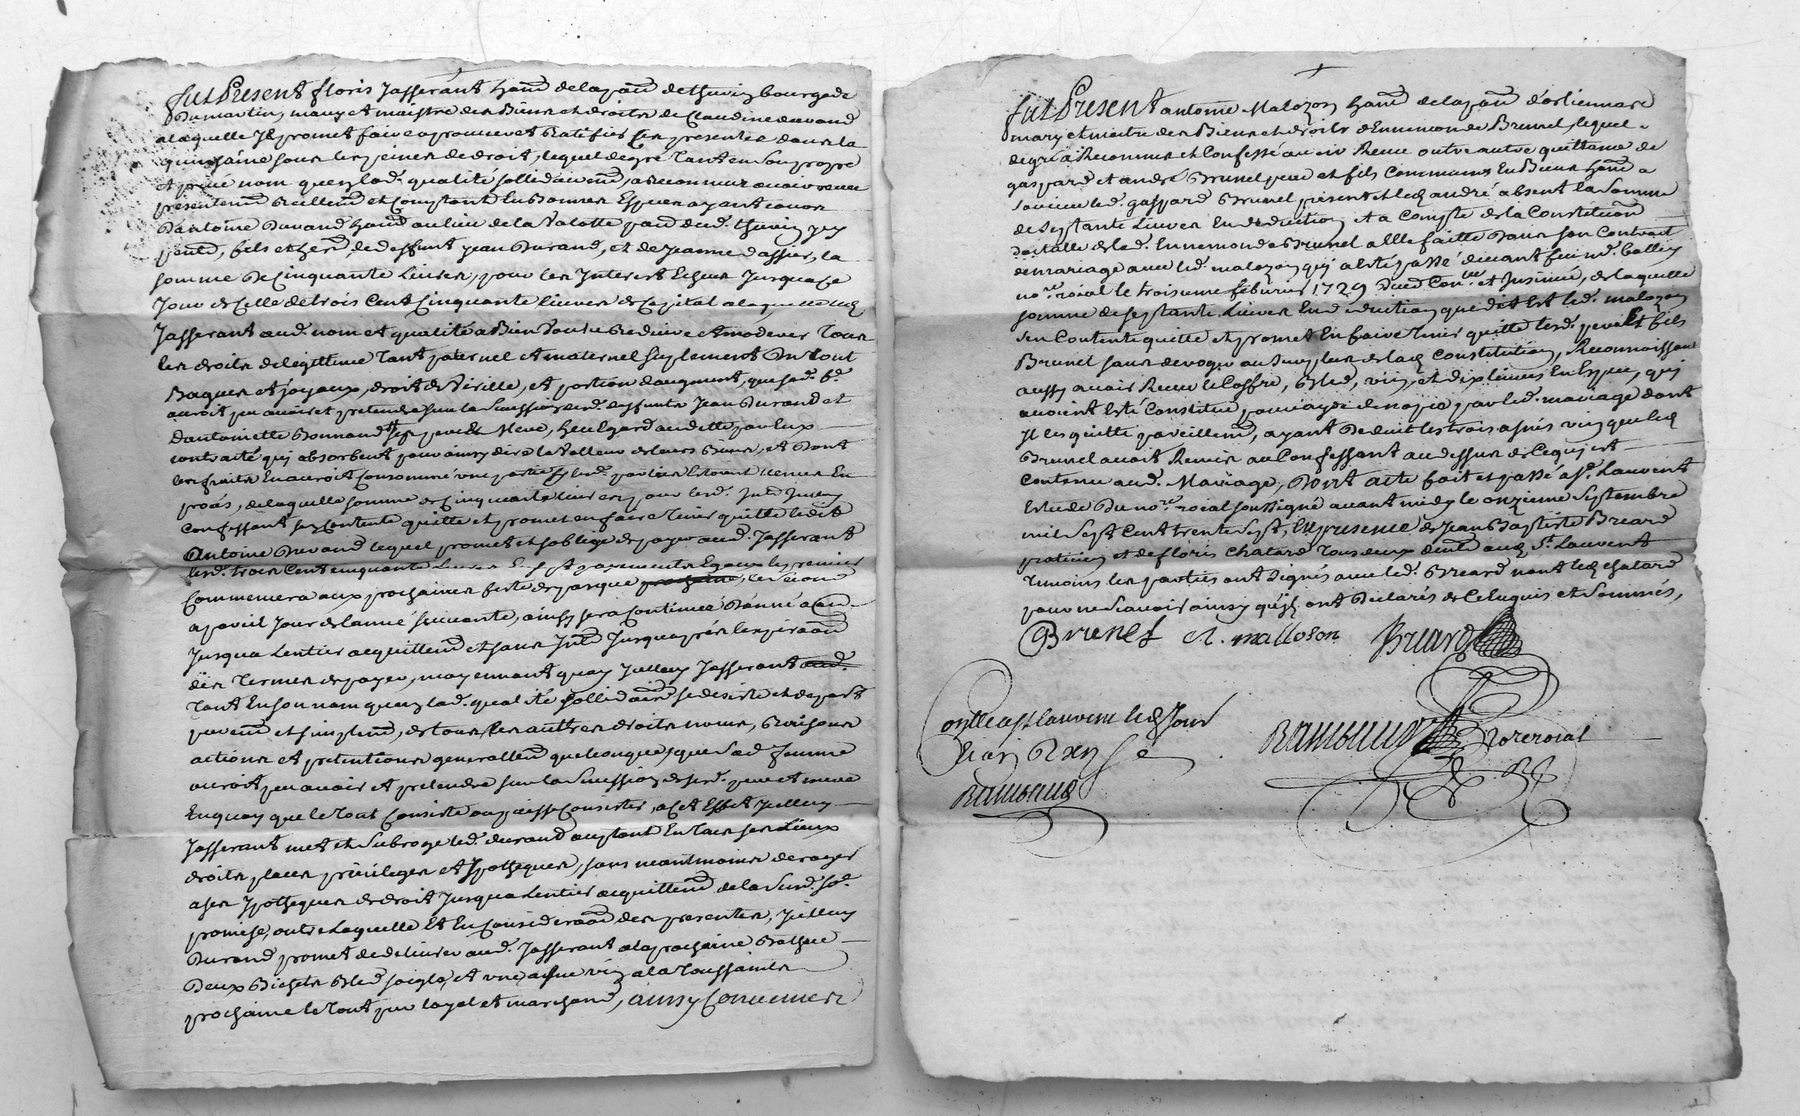 fut Present floris Jasserant hant de la par de thurin bourgade
Du martin mary et maistre des Biens et droits de Claudine durand
a laquelle Il promet faire aprouver et Ratifier les presentes dans la
quinzaine sous les peines de droit, lequel de gré tant en son propre
et privé nom qu'en lad. qualité sollidairemt, a reconnu avoir receu
presentemt Reellemt et Comptant En Bonnes Especes ayant cours
D'antoine Durand hant au lieu de la Valotte par dud. thurin Icy
pnt, fils et her de deffunt Jean Durand, et de Jeanne dassier, la
somme De Cinquante Livres, pour les Interest Echeus Jusqua Ce
Jour de Celle de trois Cent Cinquante Livres de Capital a laquelle led
Jasserant aud. nom et qualité a Bien Voulu Reduire et moderer tous
les droits de legitime tant paternel et maternel suplement du tout
Bagues et joyaux, droit de Virille, et portion d'augment, que sad. fe.
auroit peu avoir et pretendre sur la Succession desd. deffunts Jean Durand et
d'antoinette Bonnand ses pere Et Mere, heu Egard au dette par Eux
contracté qui absorbent pour ainsy dire la Valleur de leurs Biens, et Dont
les fraits En auroit Consommé une partie
procés, de laquelle somme de Cinquante livres pour lesd. Intd Jceluy
Confessant se Contente quitte et promet en faire tenir quitte ledit
Antoine Durand lequel promet et s'oblige de payer aud. Jasserant
lesd. trois Cent Cinquante Livres En payements Egaux le premier
Commencera aux prochaines feste de paque prochaine, le second
a pareil Jour de l'année suivante, ainsy sera Continué D'année a an
Jusqua L'entier acquittemt et sans Intd Jusqu'aprés l'expiraon
des termes de payer, moyennant quoy Jcelluy Jasserant aud.
tant En son nom qu'en lad. qualité sollidaire se desiste et depart
purem et simplemt, de tous les autres droits noms, Raisons
actions et pretentions generallemt quelconques que Sad. femme
auroit peu avoir et pretendre sur la Succession de sesd. pere et mere
En quoy que le tout Consiste ou puisse Consister, a Cet Effet Jcelluy
Jasserant met et Subroge led. durand acceptant En tous ses Lieux
droits places privileges et hypotheques, sans neantmoins deroger
a ses hypotheques de droit Jusqua L'entier acquittemt de la Susd. So.
promise, outre Laquelle Et En Consideraon des presentes, Jcelluy
Durand promet de delivrer aud. Jasserant a la prochaine Bathue
Deux Bichets Bled seigle, et une asnée vin a la toussaints
prochaine le tout pur loyal et marchand, ainsy Convenues
fut Present antoine Malozon hant de la par d'orliennare
mary et maitre des Biens et droits d'Ennemonde Brunel, lequel
de gré a Reconnu et Confessé avoir Receu outre autre quittance de
gaspard et andré Brunel pere et fils Communs En Biens hant a
Soucieu led. gaspard Brunel present et led andré absent la Somme
de Septante Livres En deduction et a Compte de la Constitution
dotalle de lad. Ennemonde Brunel a Elle faitte Dans son Contrait
de mariage avec led. malozon qui a eté passé devant feu m. Ballin
nore. roial le troisieme febvrier 1729 düe Con. et Insinué, de laquelle
somme de septante Livres En deduction que dit Est led. malozon
s'en Contente quitte et promet En faire tenir quitte lesd. pere Et fils
Brunel sans deroger au surplus de lad. Constitution, Reconnoissant
aussy avoir Receu le Coffre, Bled, vin, et dix Livres En Espece, qui
avoient Esté Constitué par led. mariage dont
Il les quitte pareillemt, ayant Deduit les trois asnés vin que led
Brunel avoit Remis au Confessant au dessus de Ce qui est
Contenu aud. Mariage, Dont acte fait et passé a St. Laurent
Estude Du nore. roial soussigné avant midy le onzieme Septembre
mil Sept Cent trente Sept, En presence de Jean Baptiste Briard
praticien et de floris Chatard tous deux demt aud. St. Laurent
temoins les parties ont signés avec led. Briard non led. Chatard
pour ne Scavoir ainsy qu'ils ont Declarés de Ce Enquis et Sommés,
Brunel A. malloson Briard
Conlle a St laurent led Jour
Rambaud nore roial
Rambaud